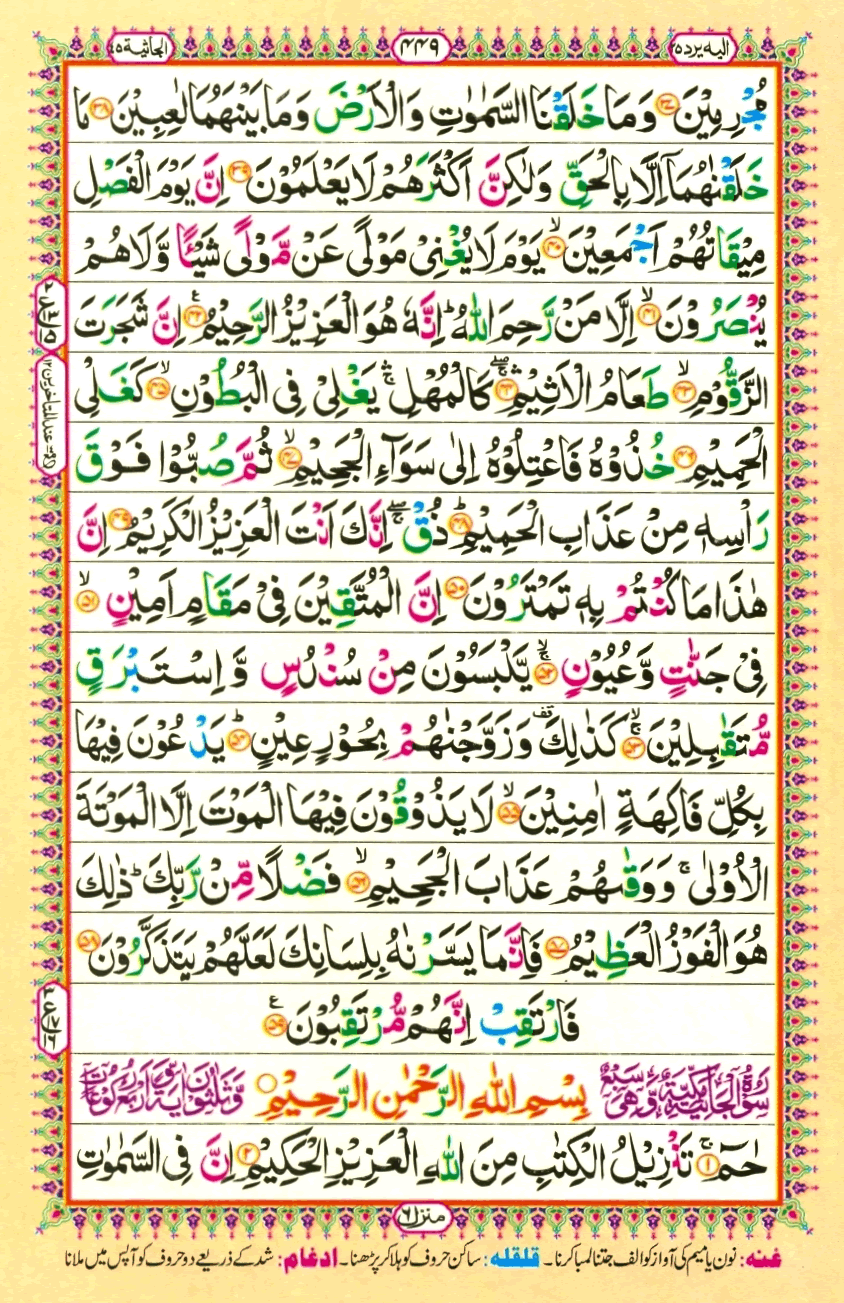 الیہ یردہ ۲۵ ۴۴۹ الجاثیۃ ۴۵
مُجْرِمِیْنَ ﴿۳۷﴾ وَ مَا خَلَقْنَا السَّمٰوٰتِ وَ الْاَرْضَ وَ مَا بَیْنَهُمَا لٰعِبِیْنَ ﴿۳۸﴾ مَا
خَلَقْنٰهُمَاۤ اِلَّا بِالْحَقِّ وَ لٰكِنَّ اَكْثَرَهُمْ لَا یَعْلَمُوْنَ ﴿۳۹﴾ اِنَّ یَوْمَ الْفَصْلِ
مِیْقَاتُهُمْ اَجْمَعِیْنَ ﴿۴۰﴾ۙ یَوْمَ لَا یُغْنِیْ مَوْلًى عَنْ مَّوْلًى شَیْــٴًـا وَّ لَا هُمْ
یُنْصَرُوْنَ ﴿۴۱﴾ۙ اِلَّا مَنْ رَّحِمَ اللّٰهُ ؕ اِنَّهٗ هُوَ الْعَزِیْزُ الرَّحِیْمُ ﴿۴۲﴾ اِنَّ شَجَرَتَ
الزَّقُّوْمِ ﴿۴۳﴾ۙ طَعَامُ الْاَثِیْمِ ﴿۴۴﴾ۖۛۚ كَالْمُهْلِ ۛۚ یَغْلِیْ فِی الْبُطُوْنِ ﴿۴۵﴾ۙ كَغَلْیِ
الْحَمِیْمِ ﴿۴۶﴾ خُذُوْهُ فَاعْتِلُوْهُ اِلٰى سَوَآءِ الْجَحِیْمِ ﴿۴۷﴾ۙ ثُمَّ صُبُّوْا فَوْقَ
رَاْسِهٖ مِنْ عَذَابِ الْحَمِیْمِ ﴿۴۸﴾ؕ ذُقْ ۖۚ اِنَّكَ اَنْتَ الْعَزِیْزُ الْكَرِیْمُ ﴿۴۹﴾ اِنَّ
هٰذَا مَا كُنْتُمْ بِهٖ تَمْتَرُوْنَ ﴿۵۰﴾ اِنَّ الْمُتَّقِیْنَ فِیْ مَقَامٍ اَمِیْنٍ ﴿۵۱﴾ۙ
فِیْ جَنّٰتٍ وَّ عُیُوْنٍ ﴿۵۲﴾ۚۙ یَّلْبَسُوْنَ مِنْ سُنْدُسٍ وَّ اِسْتَبْرَقٍ
مُّتَقٰبِلِیْنَ ﴿۵۳﴾ۚۙ كَذٰلِكَ قف وَ زَوَّجْنٰهُمْ بِحُوْرٍ عِیْنٍ ﴿۵۴﴾ؕ یَدْعُوْنَ فِیْهَا
بِكُلِّ فَاكِهَةٍ اٰمِنِیْنَ ﴿۵۵﴾ۙ لَا یَذُوْقُوْنَ فِیْهَا الْمَوْتَ اِلَّا الْمَوْتَةَ
الْاُوْلٰى ۚ وَ وَقٰىهُمْ عَذَابَ الْجَحِیْمِ ﴿۵۶﴾ۙ فَضْلًا مِّنْ رَّبِّكَ ؕ ذٰلِكَ
هُوَ الْفَوْزُ الْعَظِیْمُ ﴿۵۷﴾ فَاِنَّمَا یَسَّرْنٰهُ بِلِسَانِكَ لَعَلَّهُمْ یَتَذَكَّرُوْنَ ﴿۵۸﴾
فَارْتَقِبْ اِنَّهُمْ مُّرْتَقِبُوْنَ ﴿۵۹﴾ ع
سُوْرَةُ الْجَاثِیَةِ مَكِّیَّةٌ وَّ هِیَ سَبْعٌ بِسْمِ اللّٰهِ الرَّحْمٰنِ الرَّحِیْمِ وَّ ثَلٰثُوْنَ اٰیَةً وَّ اَرْبَعُ رُكُوْعَاتٍ
حٰمٓ ﴿۱﴾ۚ تَنْزِیْلُ الْكِتٰبِ مِنَ اللّٰهِ الْعَزِیْزِ الْحَكِیْمِ ﴿۲﴾ اِنَّ فِی السَّمٰوٰتِ
منزل ۶
غنہ: نون یا میم کی آواز کو الف جتنا لمبا کرنا۔ قلقلہ: ساکن حروف کو ہلا کر پڑھنا۔ ادغام: شد کے ذریعے دو حروف کو آپس میں ملانا